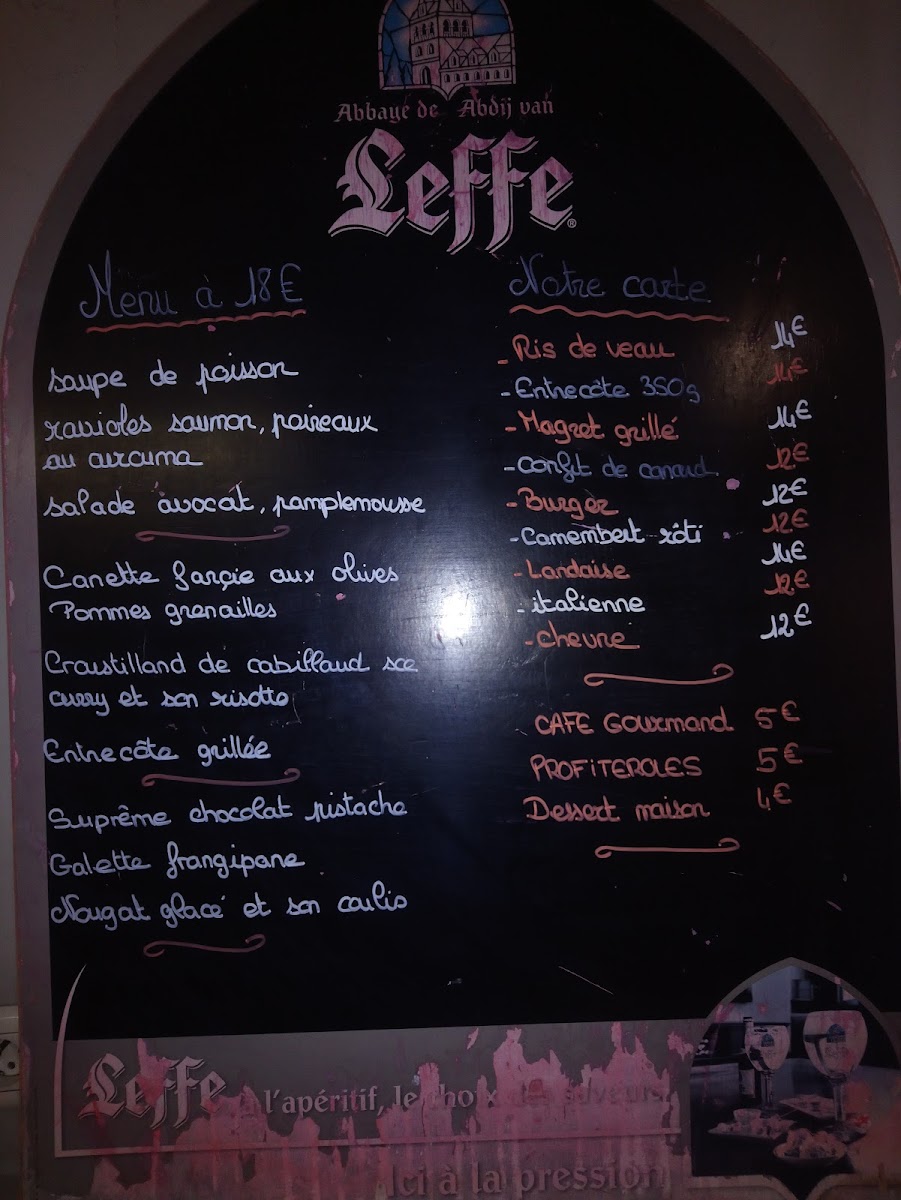 Abbaye de Abdij van
Leffe®
Menu à 18€
soupe de poisson
ravioles saumon, poireaux
au curcuma
salade avocat, pamplemousse
Canette farçie aux olives
Pommes grenailles
Croustilland de cabillaud sce
curry et son risotto
Entrecôte grillée
Suprême chocolat pistache
Galette frangipane
Nougat glacé et son coulis
Notre carte
- Ris de veau 14€
- Entrecôte 350g 14€
- Magret grillé 14€
- Confit de canard 12€
- Burger 12€
- Camembert rôti 12€
- Landaise 14€
- italienne 12€
- chevre 12€
CAFE Gourmand 5€
PROFITEROLES 5€
Dessert maison 4€
Leffe à l'apéritif, le choix des saveurs
Ici à la pression